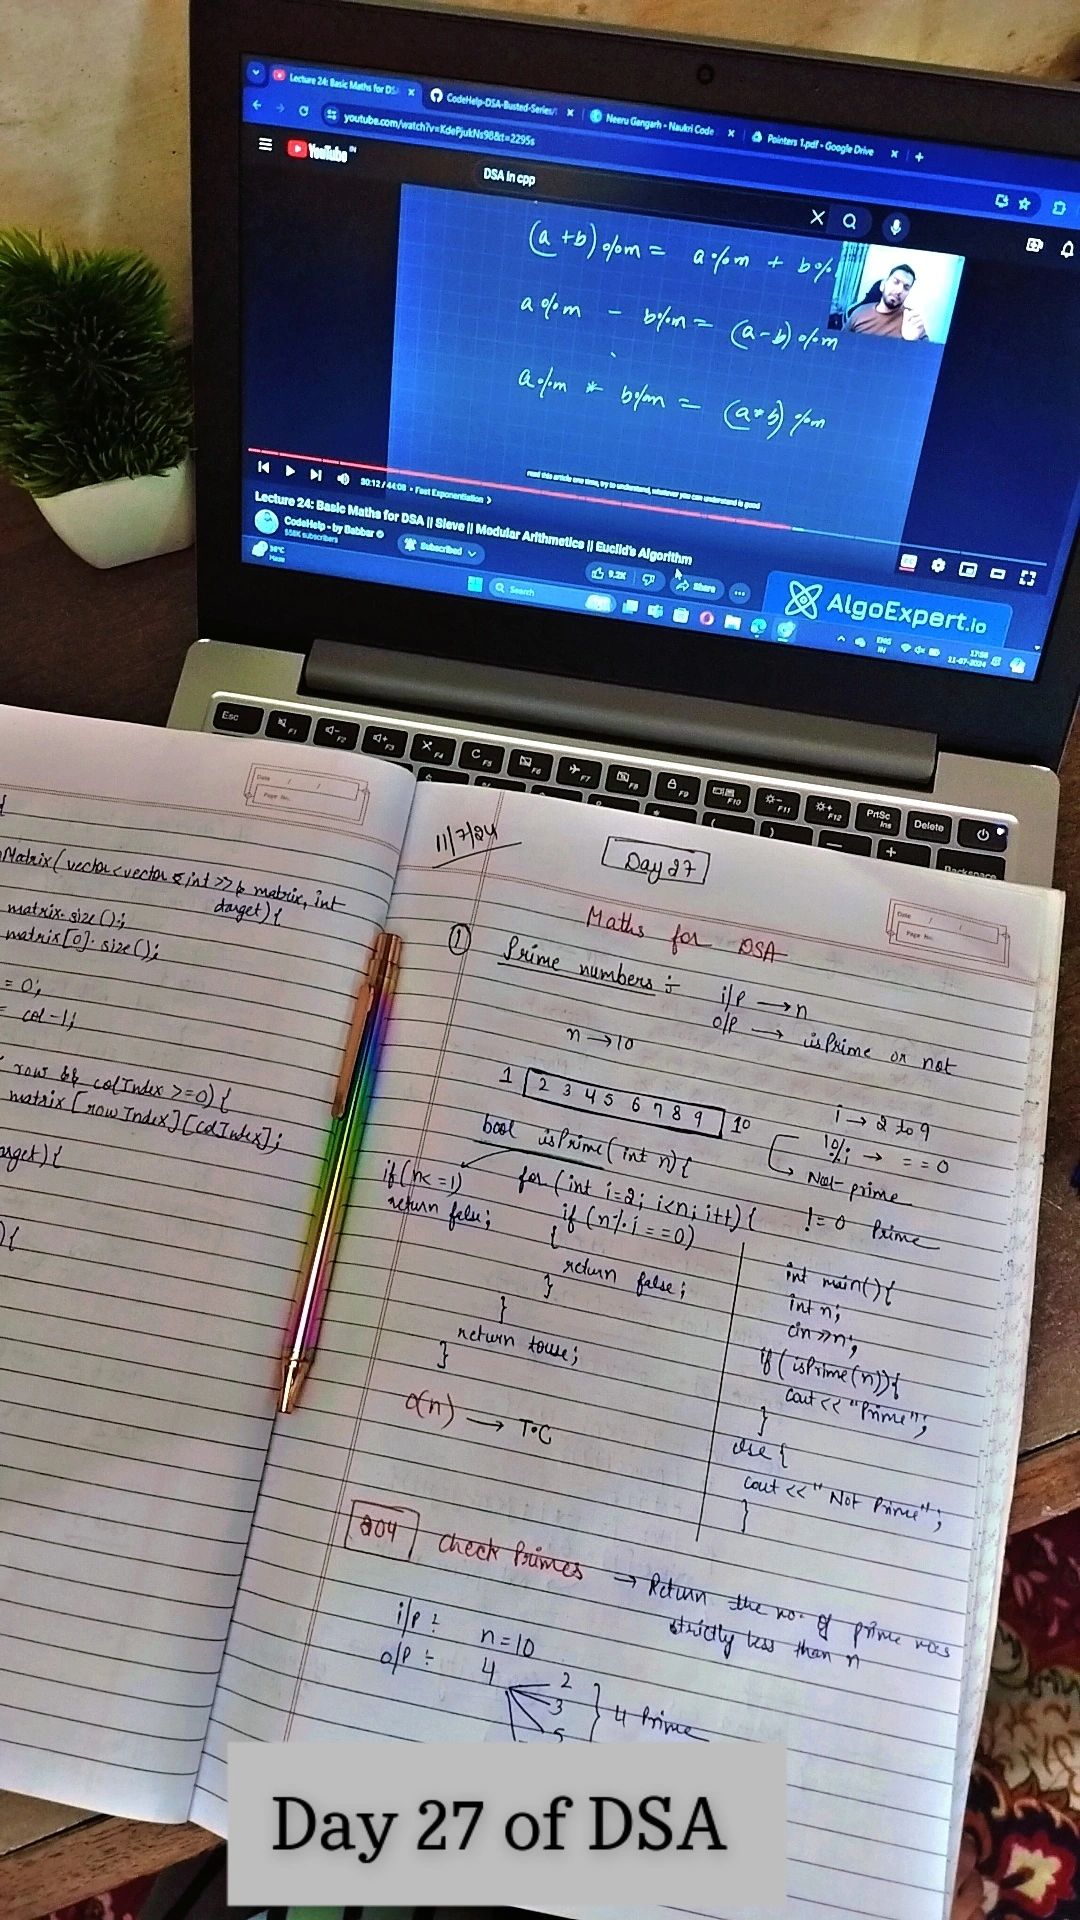 Lecture 24: Basic Maths for DS
CodeHelp-DSA-Busted-Series/
Neeru Gangarh - Naukri Code
Pointers 1.pdf - Google Drive
youtube.com/watch?v=KdePjukNs98&t=2295s
YouTube IN
DSA in cpp
(a+b)%m = a%m + b%
a%m - b%m = (a-b)%m
a%m * b%m = (a*b)%m
read this article one time, try to understand, whatever you can understand is good
30:12 / 44:08 • Fast Exponentiation >
Lecture 24: Basic Maths for DSA || Sieve || Modular Arithmetics || Euclid's Algorithm
CodeHelp - by Babbar
558K subscribers
Subscribed
9.2K
Share
AlgoExpert.io
Search
ENG
IN
17:58
11-07-2024
Esc F1 F2 F3 F4 F5 F6 F7 F8 F9 F10 F11 F12 PrtSc Ins Delete
Backspace
Date / /
Page No.
Matrix(vector<vector<int>>& matrix, int
target){
matrix.size();
matrix[0].size();
= 0;
= col-1;
row && colIndex >=0){
matrix[rowIndex][colIndex];
arget){
){
11/7/24
Day 27
Date / /
Page No.
Maths for DSA
① Prime numbers ÷ i/P → n
o/P → isPrime or not
n → 10
1 2 3 4 5 6 7 8 9 10
i → 2 to 9
10%i → ==0
Not-prime
!=0 Prime
bool isPrime(int n){
if(n<=1)
return false;
for(int i=2; i<n; i++){
if(n%i==0)
{
return false;
}
}
return true;
}
O(n) → T.C
int main(){
int n;
cin>>n;
if(isPrime(n)){
cout<<"Prime";
}
else{
cout<<"Not Prime";
}
204 Check Primes → Return the no. of prime nos
strictly less than n
i/p ÷ n=10
o/p ÷ 4
2
3
5
4 Prime
Day 27 of DSA